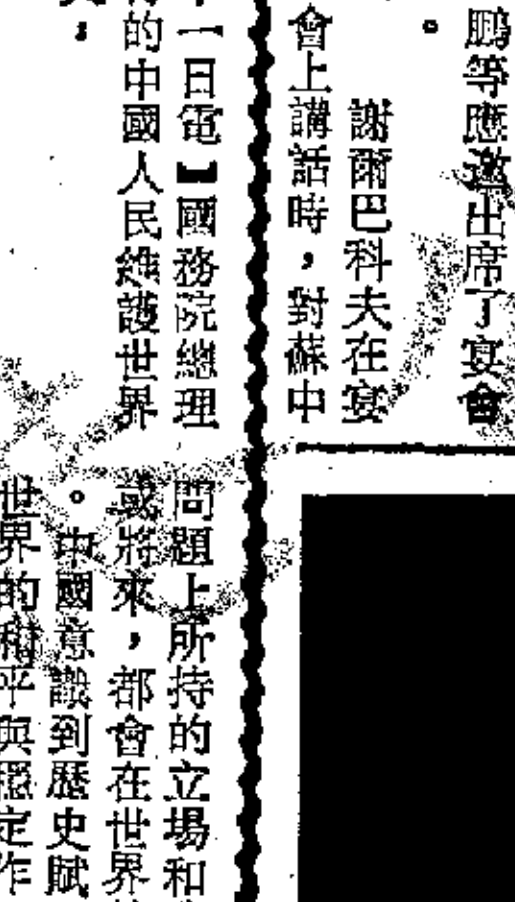 鵬等應邀出席了宴會
。
謝爾巴科夫在宴
會上講話時，對蘇中
一日電】國務院總理
的中國人民維護世界
，
問題上所持的立場和
或將來，都會在世界
。中國意識到歷史賦
世界的和平與穩定作